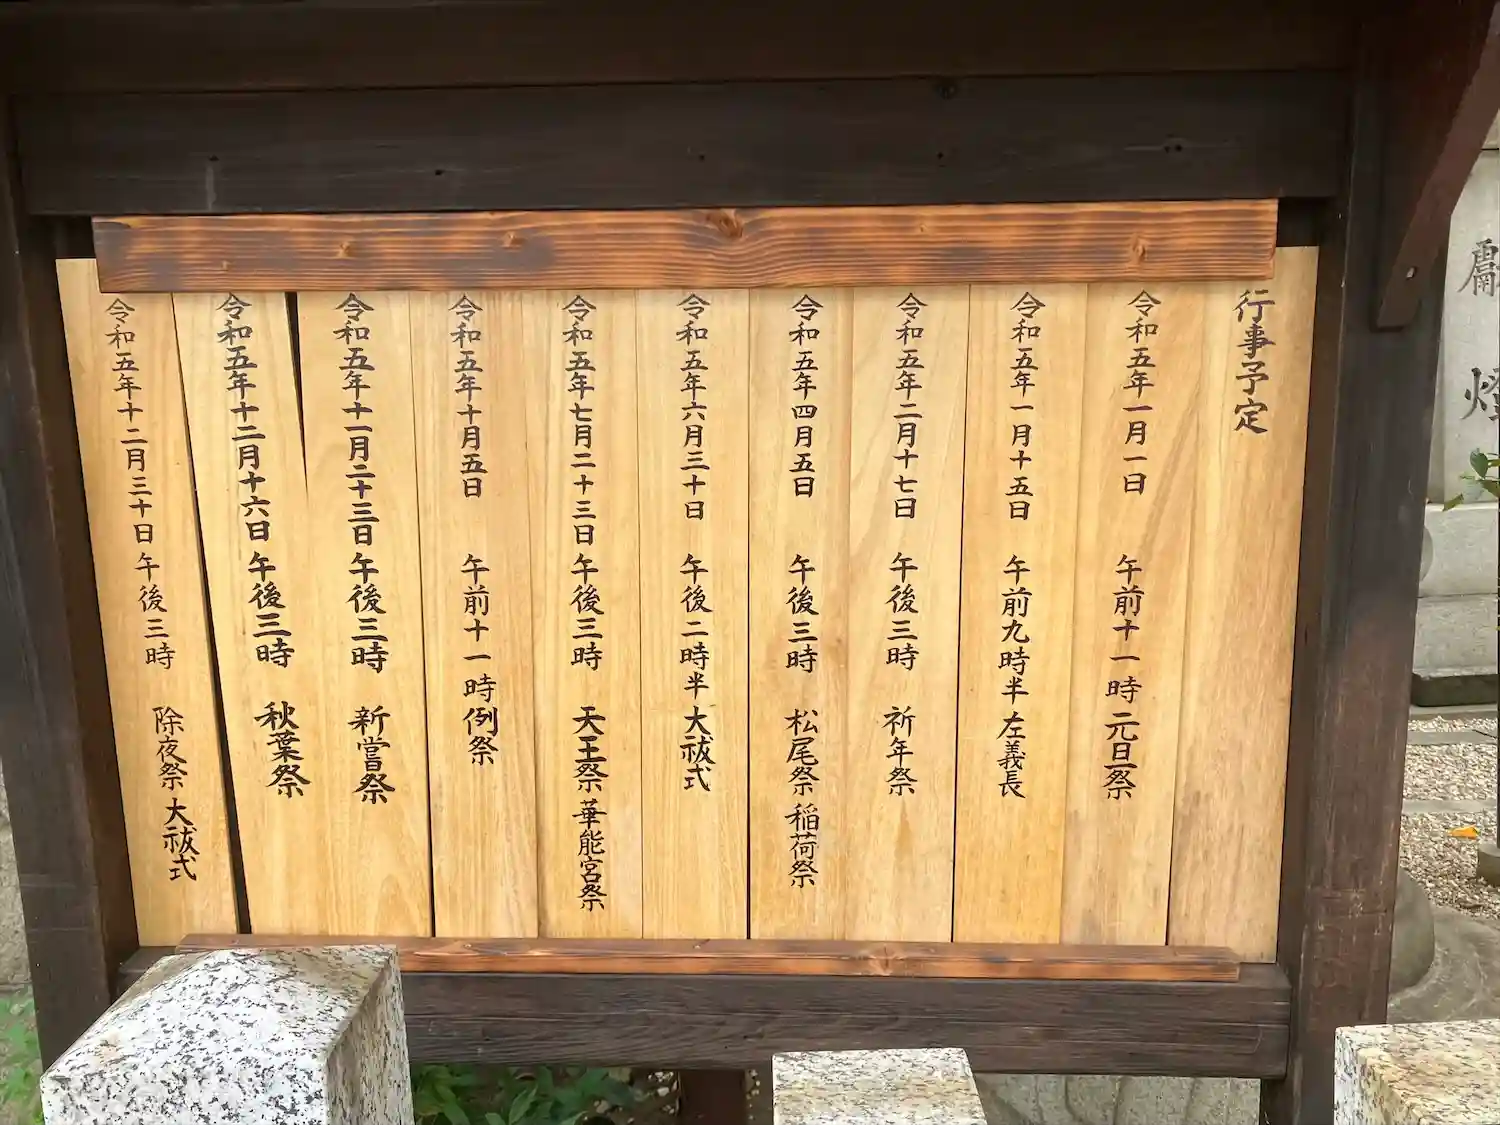 行事予定
令和五年一月一日 午前十一時 元旦祭
令和五年一月十五日 午前九時半 左義長
令和五年二月十七日 午後三時 祈年祭
令和五年四月五日 午後三時 松尾祭 稲荷祭
令和五年六月三十日 午後二時半 大祓式
令和五年七月二十三日 午後三時 天王祭 華能宮祭
令和五年十月五日 午前十一時 例祭
令和五年十一月二十三日 午後三時 新嘗祭
令和五年十二月十六日 午後三時 秋葉祭
令和五年十二月三十日 午後三時 除夜祭 大祓式